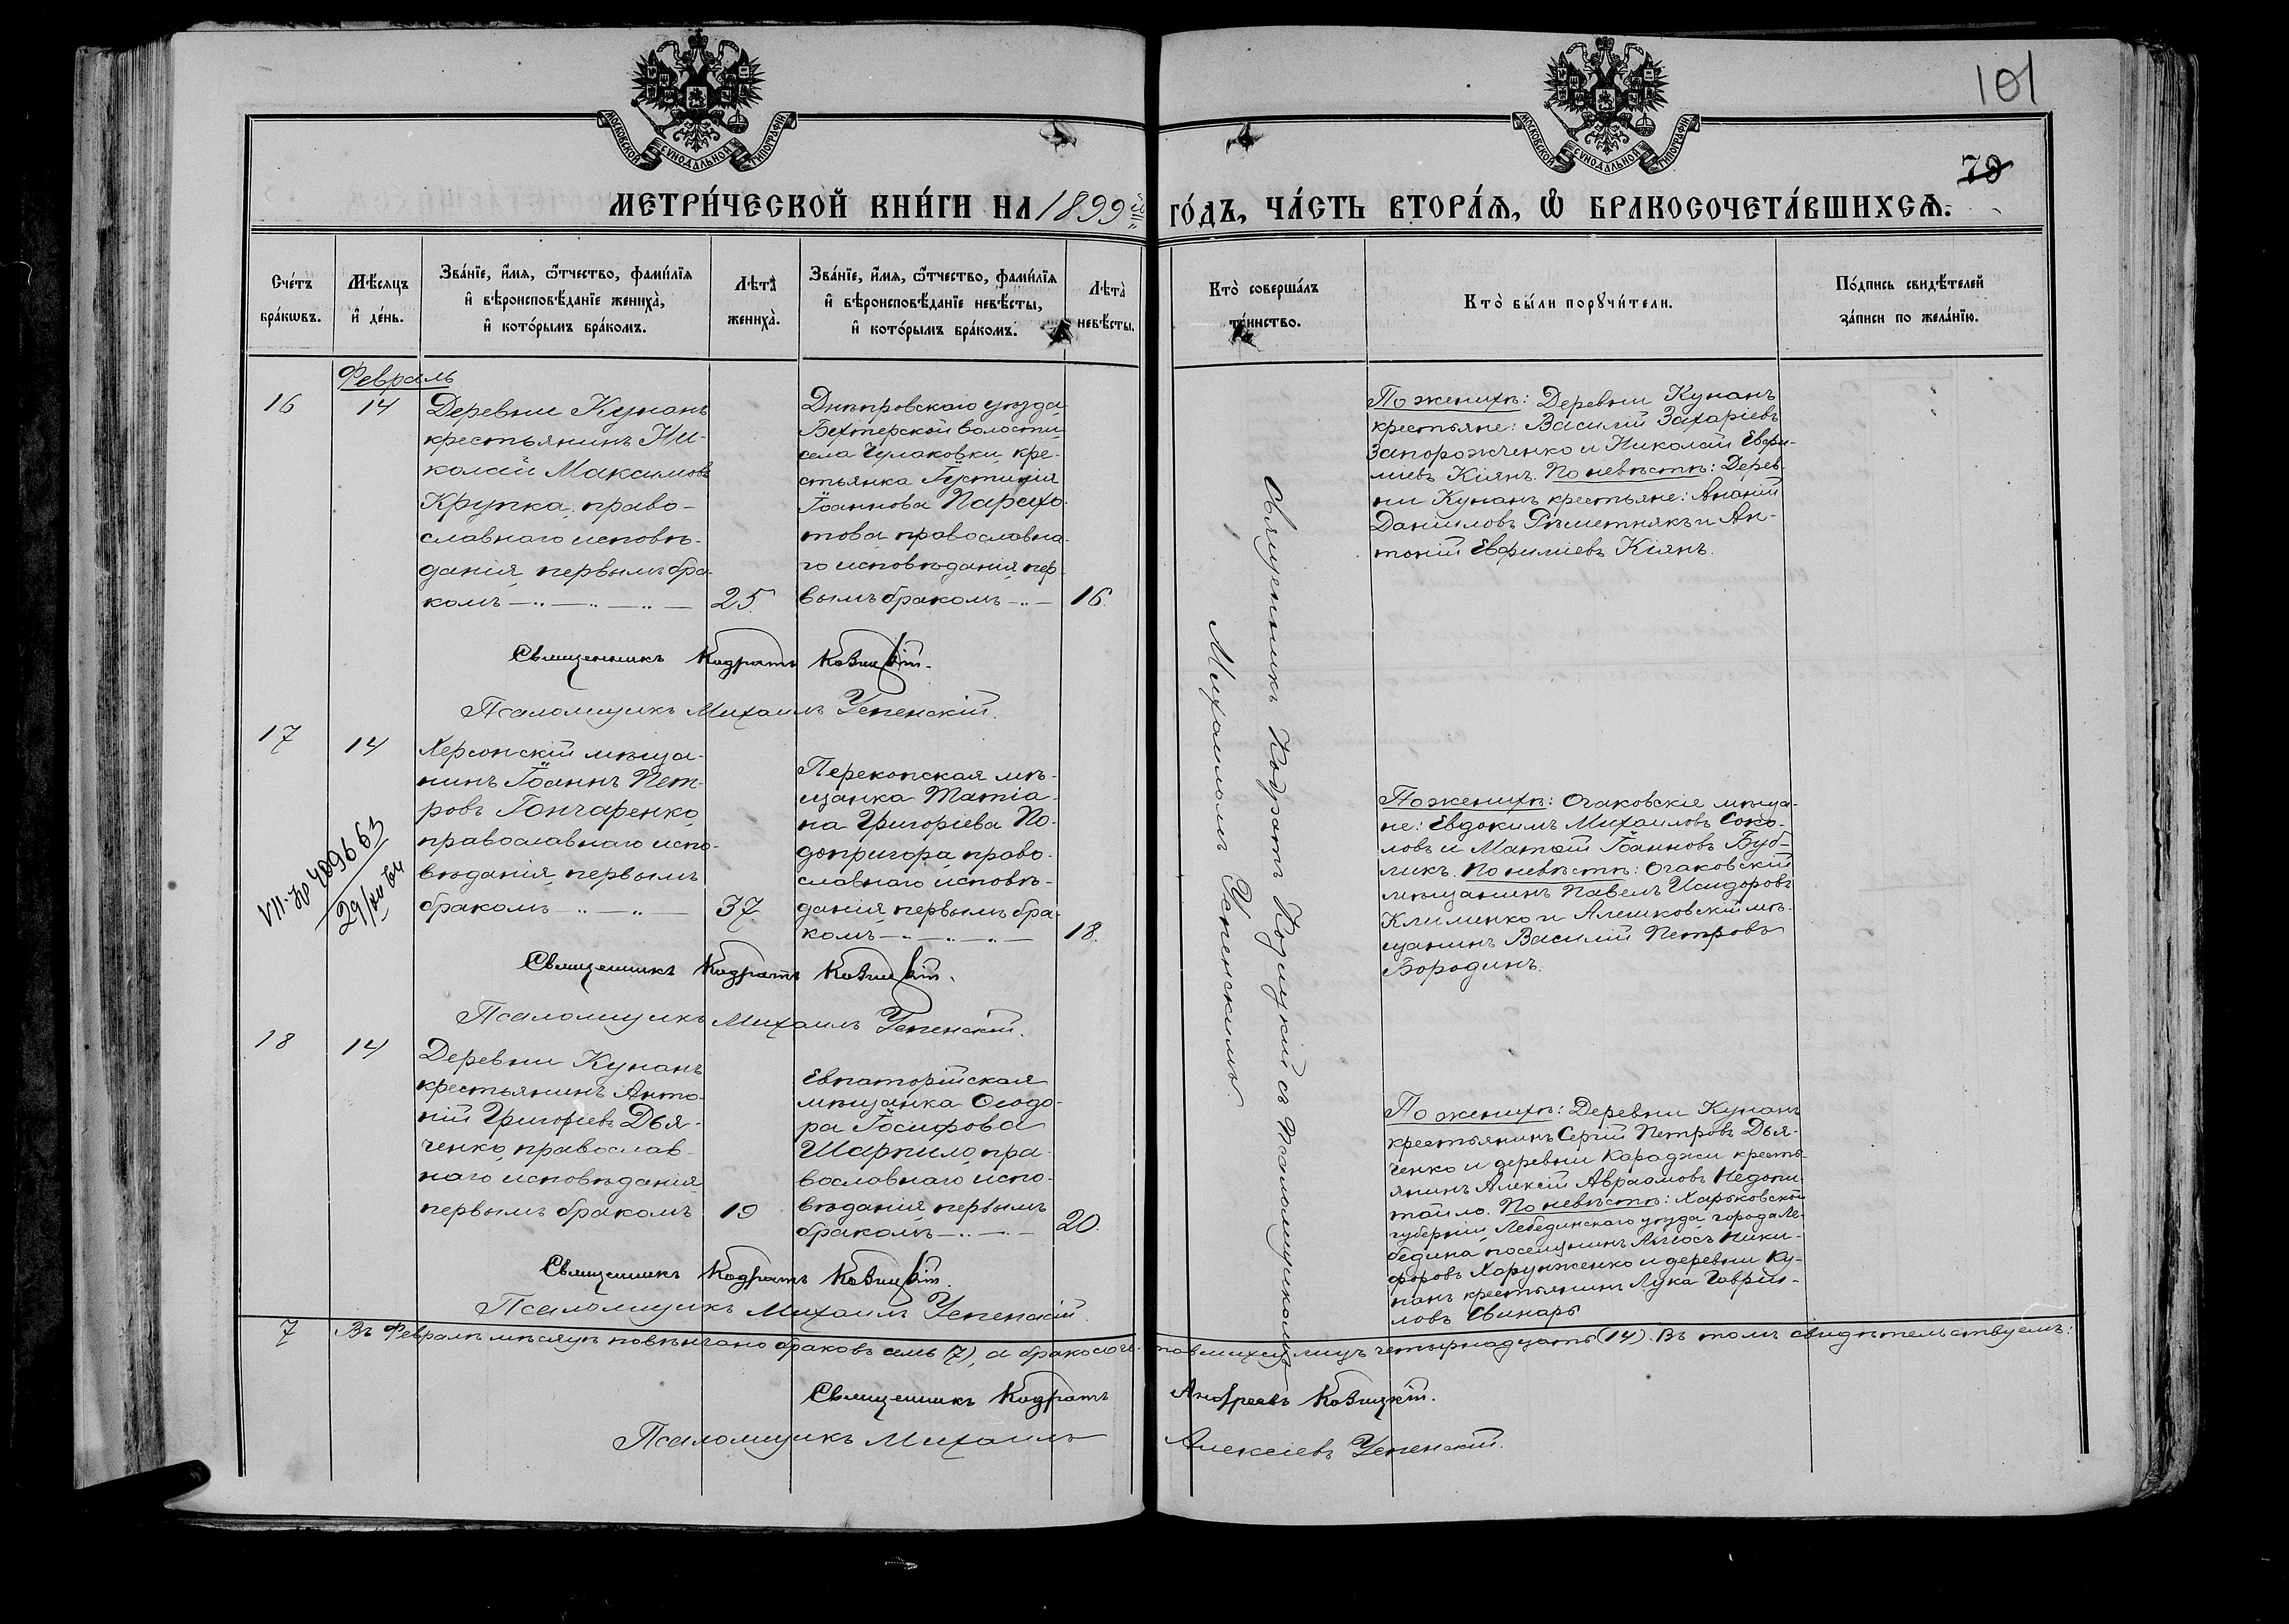 МОСКОВСКОЙ СѴНОДАЛЬНОЙ ТИПОГРАФІИ
МОСКОВСКОЙ СѴНОДАЛЬНОЙ ТИПОГРАФІИ
101
79
МЕТРИ́ЧЕСКОЙ КНИ́ГИ НА 1899й ГО́ДЪ, ЧА́СТЬ ВТОРА́Я, Ѡ БРАКОСОЧЕТА́ВШИХСѦ.
Сче́тъ
бра́кѡвъ.
Мѣ́сяцъ
и де́нь.
Зва́нїе, и́мя, ѻ́тчество, фами́лїя
и вѣроисповѣ́данїе жениха̀,
и кото́рымъ бра́комъ.
Лѣта̀
жениха̀.
Зва́нїе, и́мя, ѻ́тчество, фами́лїя
и вѣроисповѣ́данїе невѣ́сты,
и кото́рымъ бра́комъ.
Лѣта̀
невѣ́сты.
Кто̀ соверша́лъ
та́инство.
Кто̀ бы́ли порꙋчи́тели.
По́дпись свидѣ́телей
за́писи по жела́нїю.
Февраль
16
14
Деревни Кунанъ
крестьянинъ Ни-
колай Максимовъ
Крупка, право-
славнаго исповѣ-
данія, первымъ бра-
комъ
25.
Днѣпровскаго уѣзда
Бехтерской волости
села Чулаковки кре-
стьянка Іустинія
Іоаннова Парсхо-
това православна-
го исповѣданія, пер-
вымъ бракомъ
16.
По женихѣ: Деревни Кунанъ
крестьяне: Василій Захаріевъ
Запорожченко и Николай Евфи-
міевъ Кіянъ. По невѣстѣ: Дерев-
ни Кунанъ крестьяне: Ананій
Даниловъ Рѣшетнякъ и Ан-
тоній Евфиміевъ Кіянъ.
Священникъ Кодратъ Козицкій.
Псаломщикъ Михаилъ Успенскій.
17
14
Херсонскій мѣща-
нинъ Іоаннъ Пет-
ровъ Гончаренко,
православнаго испо-
вѣданія, первымъ
бракомъ
37
Перекопская мѣ-
щанка Татіа-
на Григоріева По-
допригора, право-
славнаго исповѣ-
данія первымъ бра-
комъ
18.
По женихѣ: Очаковскіе мѣща-
не: Евдокимъ Михаиловъ Соко-
ловъ и Матѳій Іоанновъ Буб-
ликъ. По невѣстѣ: Очаковскій
мѣщанинъ Павелъ Исидоровъ
Клименко и Алешковскій мѣ-
щанинъ Василій Петровъ
Бородинъ.
VII-ЯР 409663
29/XII 64
Священникъ Кодратъ Козицкій.
Псаломщикъ Михаилъ Успенскій.
18
14
Деревни Кунанъ
крестьянинъ Анто-
ній Григоріевъ Дья-
ченко, православ-
наго исповѣданія
первымъ бракомъ
19
Евпаторійская
мѣщанка Ѳеодо-
ра Іосифова
Шарпило, пра-
вославнаго испо-
вѣданія, первымъ
бракомъ
20.
По женихѣ: Деревни Кунанъ
крестьянинъ Сергій Петровъ Дья-
ченко и деревни Караджи кресть-
янинъ Алексій Авраамовъ Недопи-
тайло. По невѣстѣ: Харьковской
губерніи, Лебединскаго уѣзда города Ле-
бедина поселянинъ Амосъ Ники-
форовъ Харунженко и деревни Ку-
нанъ крестьянинъ Лука Гаврии-
ловъ Свинарь.
Священникъ Кодратъ Козицкій.
Псаломщикъ Михаилъ Успенскій.
Священникъ Кодратъ Козицкій съ Псаломщикомъ
Михаиломъ Успенскимъ.
7
Въ Февралѣ мѣсяцѣ повѣнчано браковъ семь (7), а бракосоче-тавшихся лицъ четырнадцать (14). Въ томъ свидѣтельствуемъ:
Священникъ Кодратъ Андреевъ Козицкій.
Псаломщикъ Михаилъ Алексіевъ Успенскій.